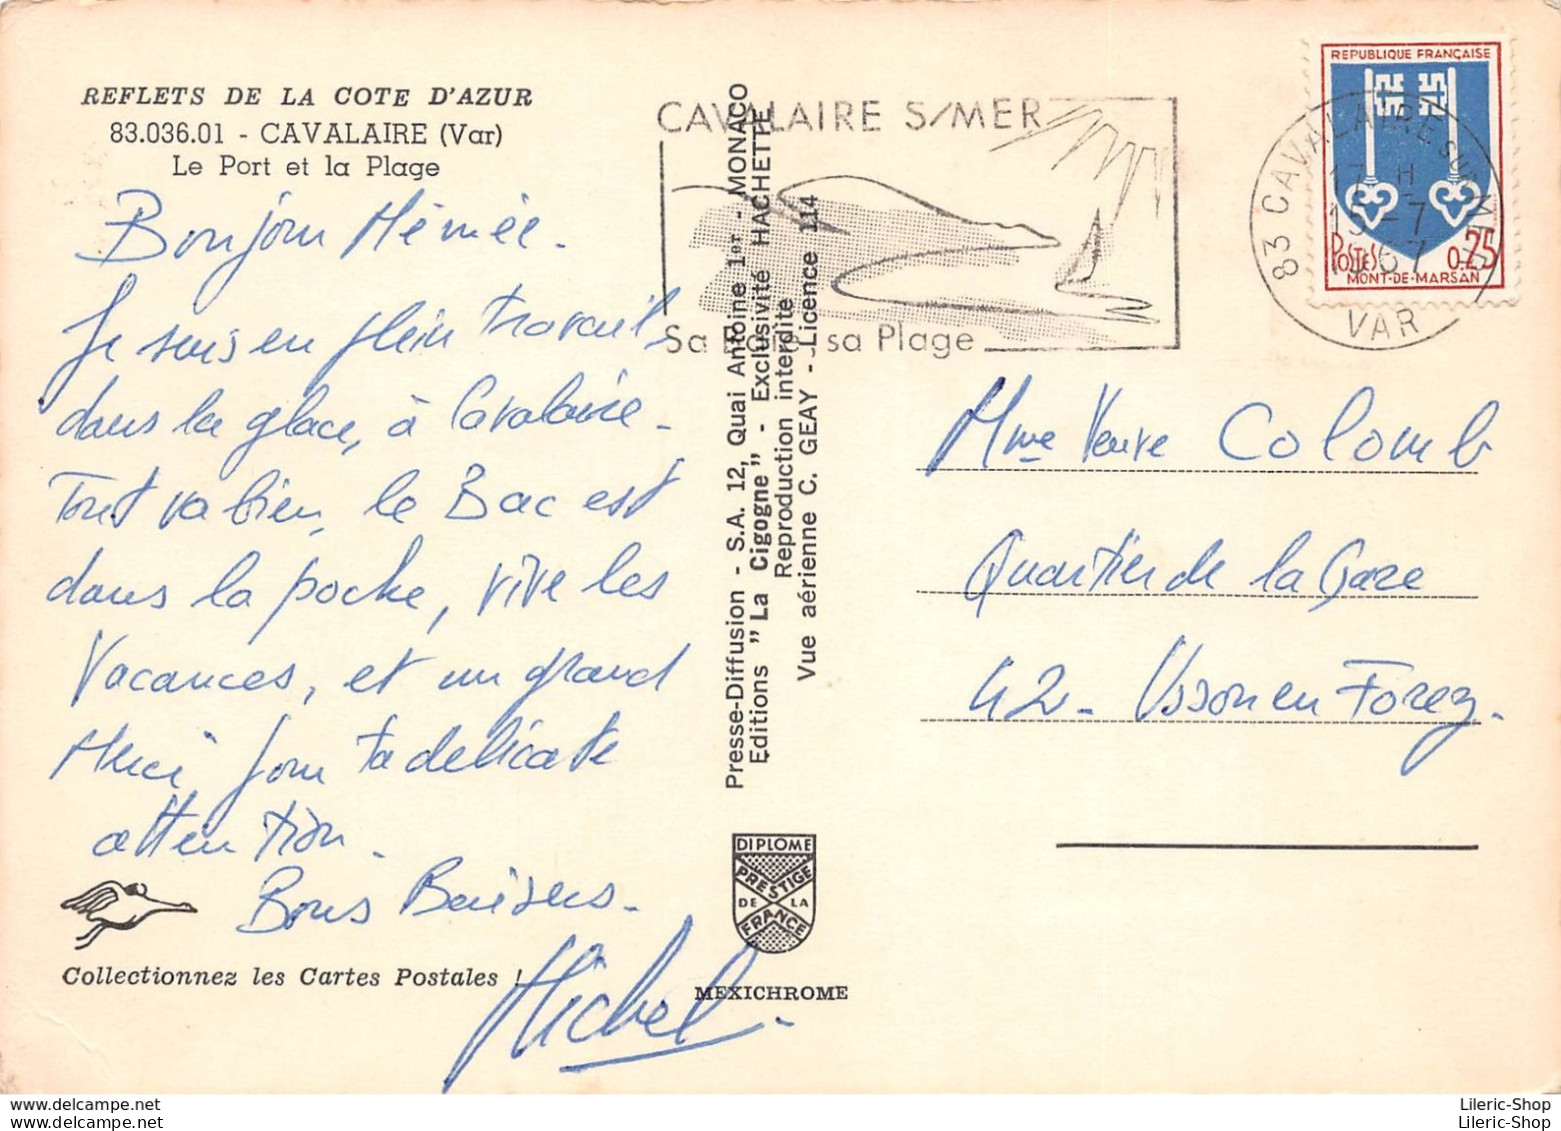 REFLETS DE LA COTE D'AZUR
83.036.01 - CAVALAIRE (Var)
Le Port et la Plage
Bonjour Mémée.
Je suis en plein travail,
dans la glace, à Cavalaire.
Tout va bien, le Bac est
dans la poche, vive les
Vacances, et un grand
Merci pour ta delicate
attention.
Bons Baisers.
Michel
Collectionnez les Cartes Postales !
Presse-Diffusion - S.A. 12, Quai Antoine 1er - MONACO
Editions "La Cigogne" - Exclusivité HACHETTE
Reproduction interdite
Vue aérienne C. GEAY - Licence 114
DIPLOME
PRESTIGE
DE LA
FRANCE
MEXICHROME
CAVALAIRE S/MER
Sa sa Plage
REPUBLIQUE FRANÇAISE
POSTES 0,25
MONT-DE-MARSAN
83 CAVALAIRE SUR MER
17 H
15-7
1967
VAR
Mme Veuve Colomb
Quartier de la Gare
42 - Usson en Forez.
Lileric-Shop
Lileric-Shop
delcampe.net
Lileric-Shop
Lileric-Shop